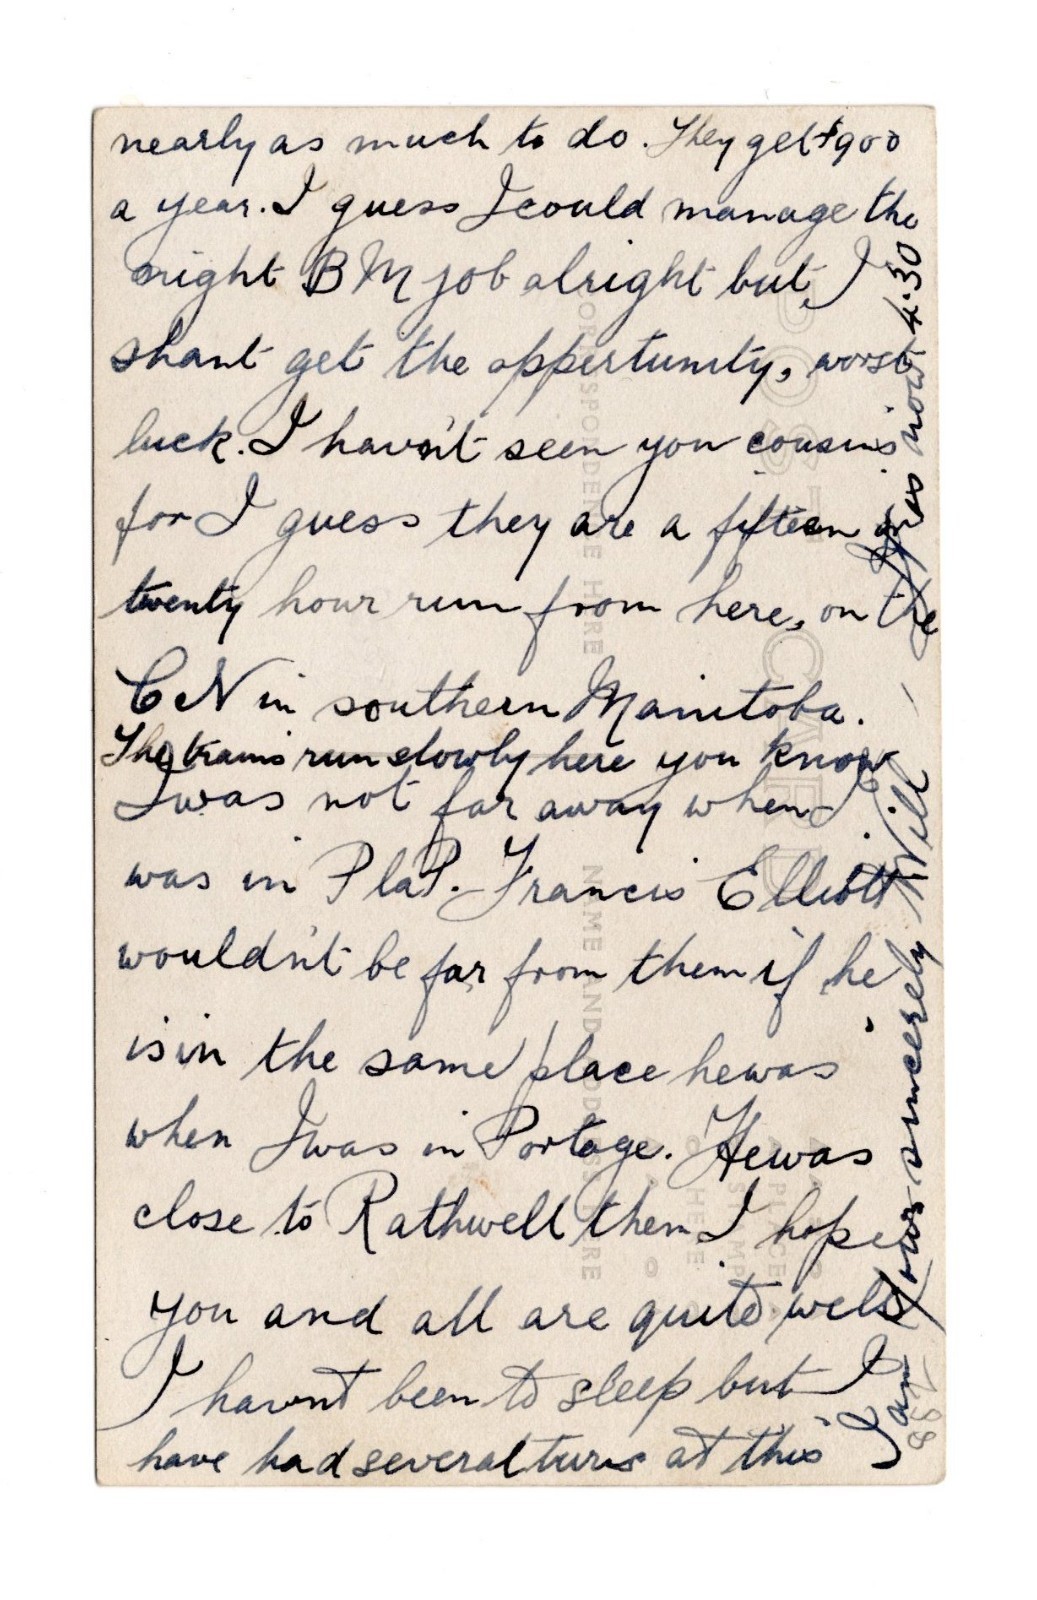 nearly as much to do. They get $900
a year. I guess I could manage the
night BM job alright but I
shant get the oppertunity, worst
luck. I havn't seen you cousins
for I guess they are a fifteen or
twenty hour run from here, on the
CN in southern Manitoba.
The trains run slowly here you know
I was not far away when I
was in P la P. Francis Elliott
wouldn't be far from them if he
is in the same place he was
when I was in Portage. He was
close to Rathwell then I hope
you and all are quite well
I havnt been to sleep but I
have had several turns at this
It is now 4:30
I am Yours sincerely Will
POST CARD
CORRESPONDENCE HERE
NAME AND ADDRESS HERE
PLACE
STAMP
HERE